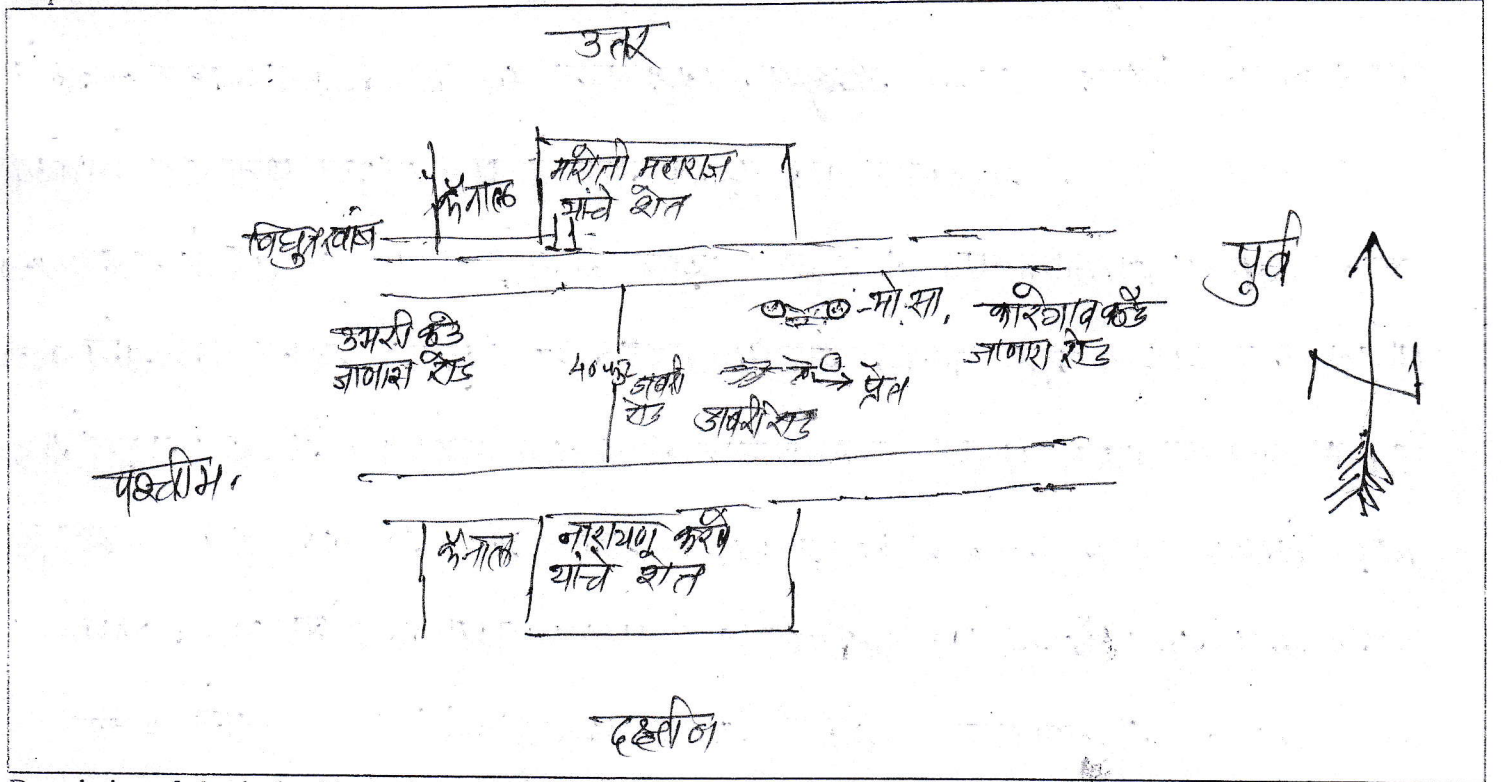 उत्तर
कॅनाल
मारोती महाराज
यांचे शेत
विद्युत खांब
पुर्व
मो.सा.
कारेगाव कडे
जाणारा रोड
उमरी कडे
जाणारा रोड
40 फुट
डांबरी
रोड
प्रेत
डांबरी रोड
पश्चीम.
कॅनाल
नारायण कर्पे
यांचे शेत
दक्षीन